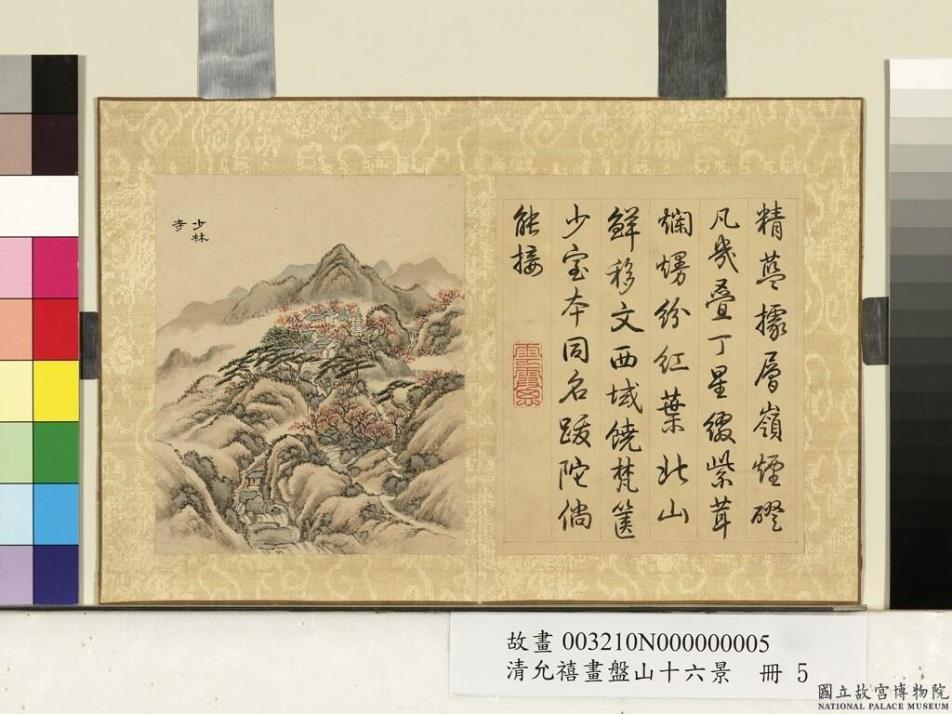 少林
寺
精藍據層嶺煙磴
凡幾疊丁星綴紫茸
爛熳紛紅葉北山
鮮移文西域饒梵篋
少室本同名跋陀倘
能接
故畫 003210N000000005
清允禧畫盤山十六景 冊 5
國立故宮博物院
NATIONAL PALACE MUSEUM